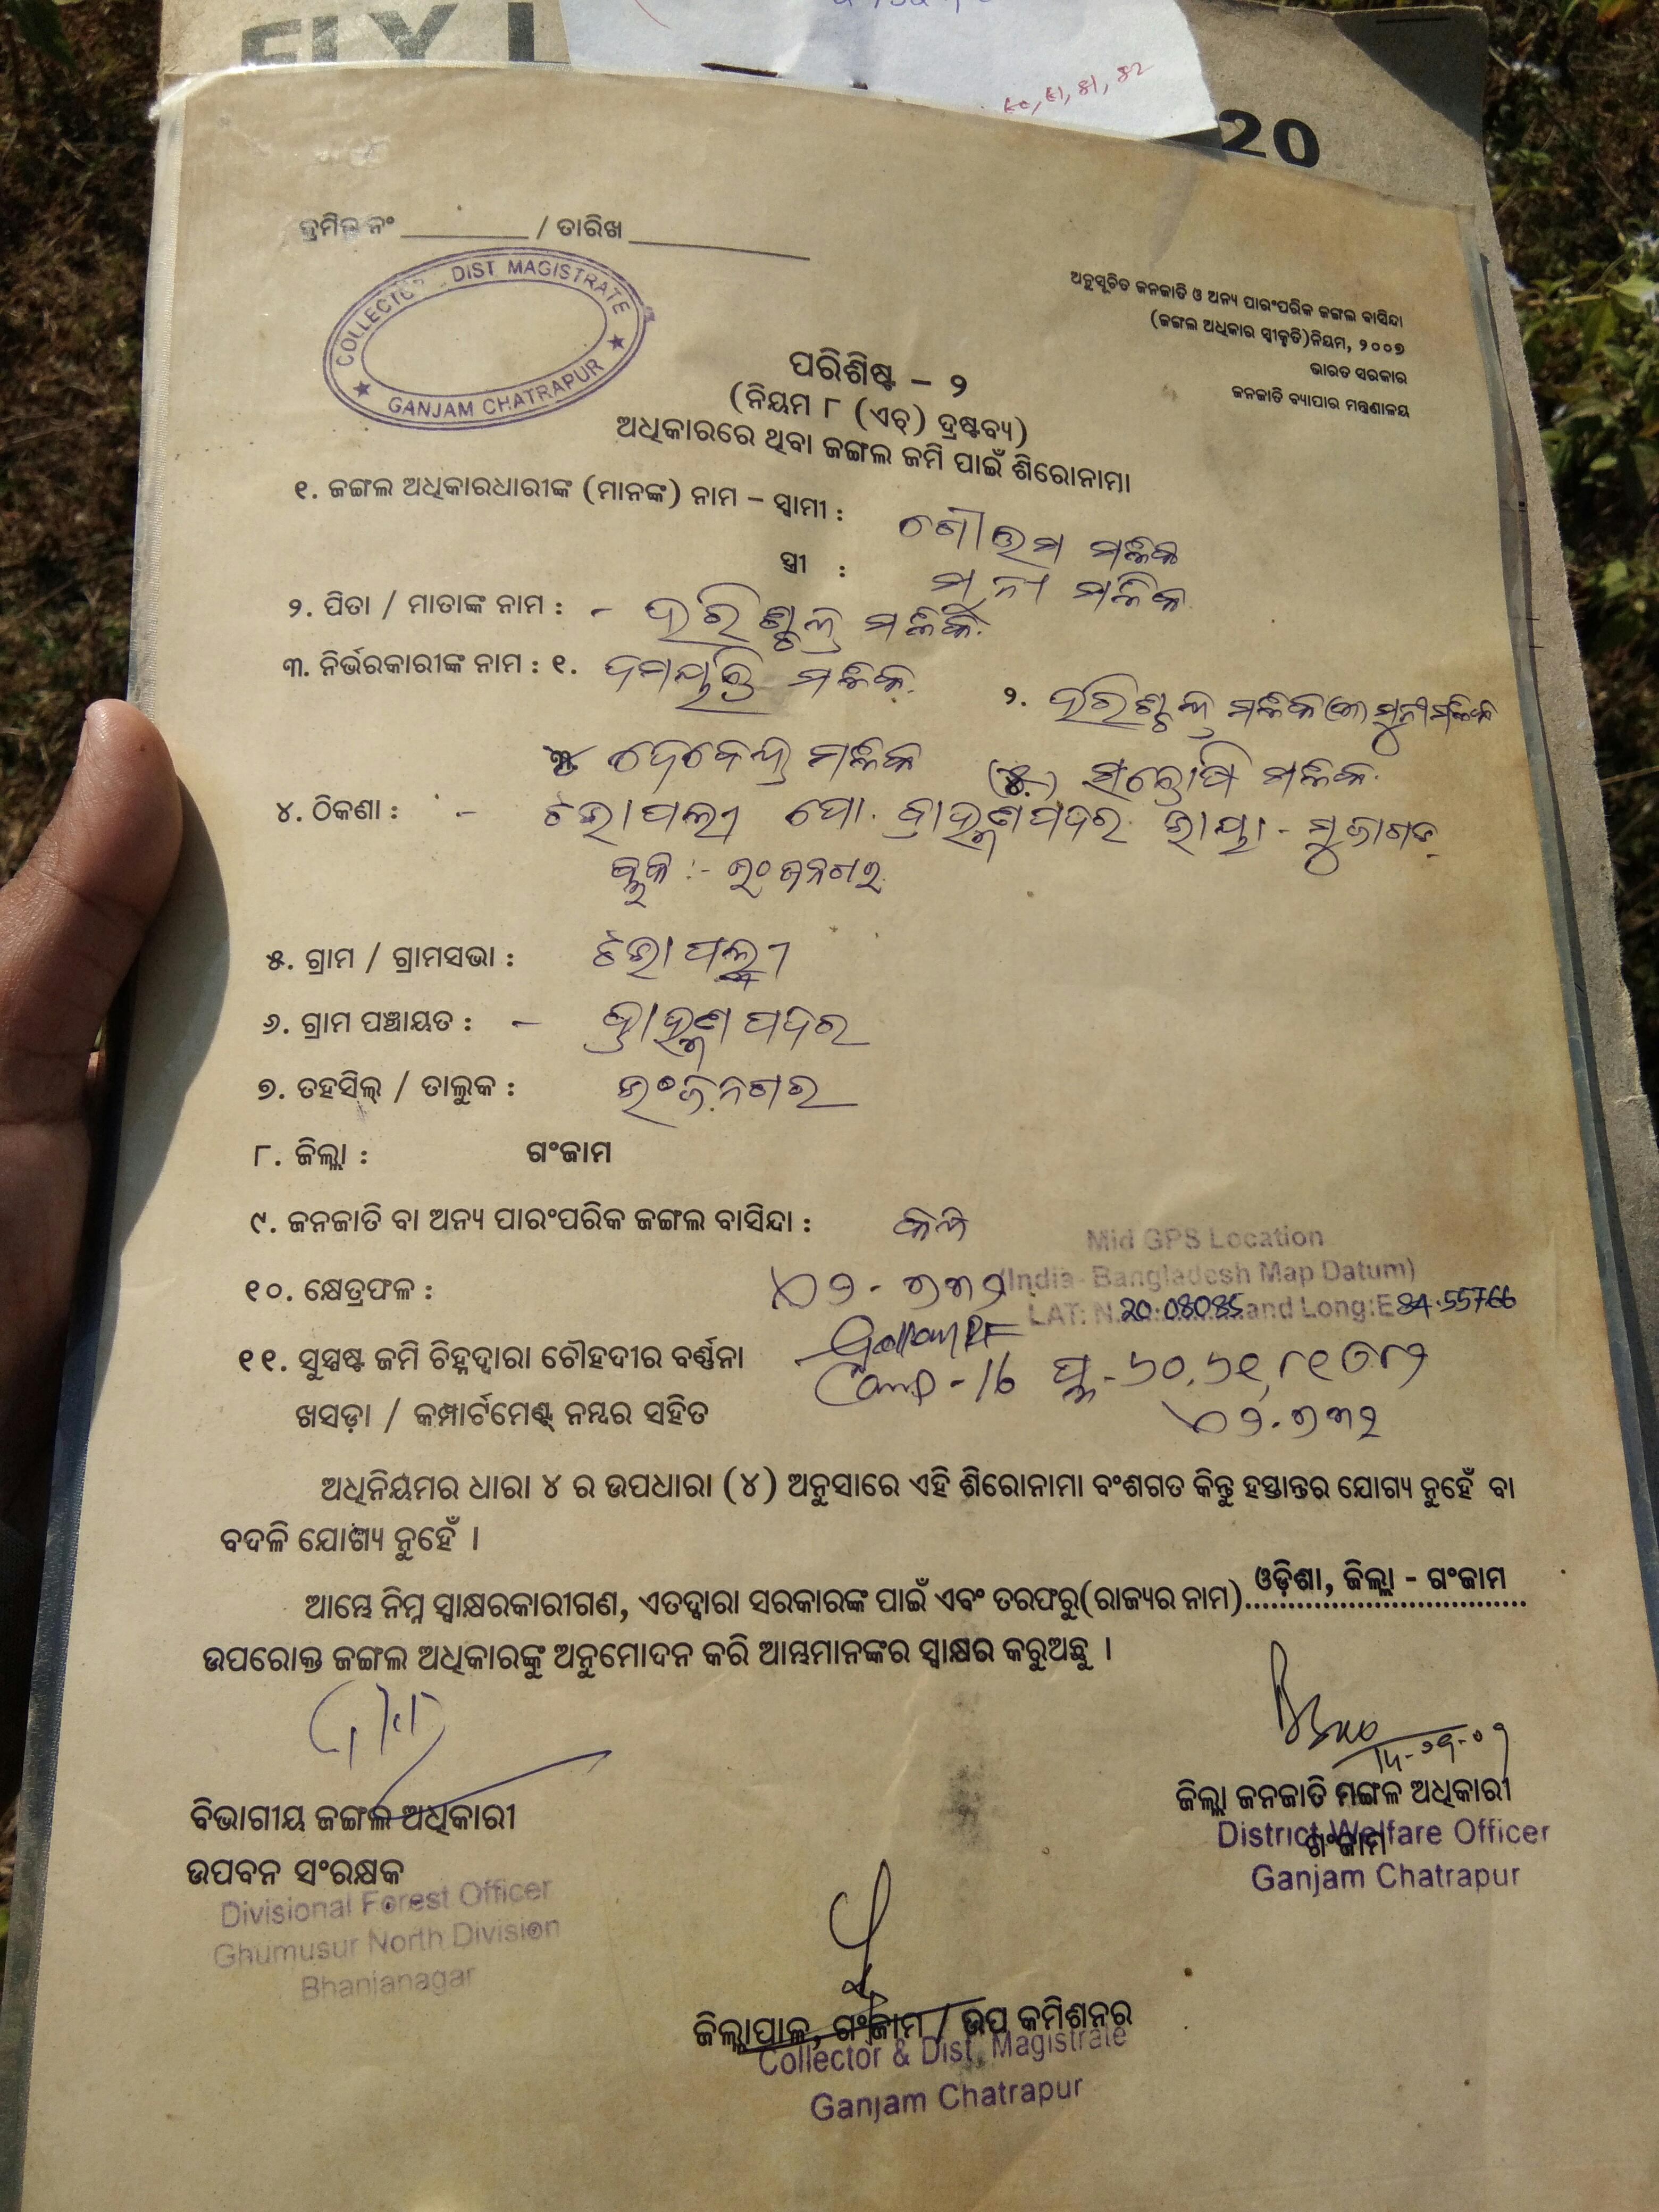 FLY
20
କ୍ରମିକ ନଂ / ତାରିଖ
COLLECTOR DIST MAGISTRATE
GANJAM CHATRAPUR
ଅନୁସୂଚିତ ଜନଜାତି ଓ ଅନ୍ୟ ପାରଂପରିକ ଜଙ୍ଗଲ ବାସିନ୍ଦା
(ଜଙ୍ଗଲ ଅଧିକାର ସ୍ୱୀକୃତି) ନିୟମ, ୨୦୦୭
ଭାରତ ସରକାର
ଜନଜାତି ବ୍ୟାପାର ମନ୍ତ୍ରଣାଳୟ
ପରିଶିଷ୍ଟ – ୨
(ନିୟମ ୮ (ଏଚ୍) ଦ୍ରଷ୍ଟବ୍ୟ)
ଅଧିକାରରେ ଥିବା ଜଙ୍ଗଲ ଜମି ପାଇଁ ଶିରୋନାମା
୧. ଜଙ୍ଗଲ ଅଧିକାରଧାରୀଙ୍କ (ମାନଙ୍କ) ନାମ – ସ୍ୱାମୀ : ଗୌତମ ମଲ୍ଲିକ
ସ୍ତ୍ରୀ : ମଲ୍ଲିକ
୨. ପିତା / ମାତାଙ୍କ ନାମ : - ହରିଶ୍ଚନ୍ଦ୍ର ମଲ୍ଲିକ
୩. ନିର୍ଭରକାରୀଙ୍କ ନାମ : ୧. ଦମୟନ୍ତି ମଲ୍ଲିକ ୨. ହରିଶ୍ଚନ୍ଦ୍ର ମଲ୍ଲିକ (୩) ମଲ୍ଲିକ
୪ ଦେବେନ୍ଦ୍ର ମଲ୍ଲିକ (୫) ସନ୍ତୋଷି ମଲ୍ଲିକ
୪. ଠିକଣା : - ପୋ. ବ୍ରାହ୍ମଣପଦର ଭାୟା - ମୁଜାଗଡ଼
ବ୍ଲକ :- ଭଂଜନଗର
୫. ଗ୍ରାମ / ଗ୍ରାମସଭା :
୬. ଗ୍ରାମ ପଞ୍ଚାୟତ : - ବ୍ରାହ୍ମଣପଦର
୭. ତହସିଲ୍ / ତାଲୁକ : ଭଂଜନଗର
୮. ଜିଲ୍ଲା : ଗଂଜାମ
୯. ଜନଜାତି ବା ଅନ୍ୟ ପାରଂପରିକ ଜଙ୍ଗଲ ବାସିନ୍ଦା :
Mid GPS Location
(India- Bangladesh Map Datum)
୧୦. କ୍ଷେତ୍ରଫଳ : ୦୨.୭୩୨
LAT: N.20.08085 and Long:E 84.55766
୧୧. ସୁସ୍ପଷ୍ଟ ଜମି ଚିହ୍ନଦ୍ୱାରା ଚୌହଦୀର ବର୍ଣ୍ଣନା
ଖସଡ଼ା / କମ୍ପାର୍ଟମେଣ୍ଟ୍ ନମ୍ବର ସହିତ
Comp - 16 ପ୍ଲ - ୬୦, ୬୧, ୮୧ ଓ ୮୨
୦୨.୭୩୨
ଅଧିନିୟମର ଧାରା ୪ ର ଉପଧାରା (୪) ଅନୁସାରେ ଏହି ଶିରୋନାମା ବଂଶଗତ କିନ୍ତୁ ହସ୍ତାନ୍ତର ଯୋଗ୍ୟ ନୁହେଁ ବା
ବଦଳି ଯୋଗ୍ୟ ନୁହେଁ ।
ଆମ୍ଭେ ନିମ୍ନ ସ୍ୱାକ୍ଷରକାରୀଗଣ, ଏତଦ୍ଦ୍ୱାରା ସରକାରଙ୍କ ପାଇଁ ଏବଂ ତରଫରୁ (ରାଜ୍ୟର ନାମ) ଓଡ଼ିଶା, ଜିଲ୍ଲା - ଗଂଜାମ
ଉପରୋକ୍ତ ଜଙ୍ଗଲ ଅଧିକାରଙ୍କୁ ଅନୁମୋଦନ କରି ଆମ୍ଭମାନଙ୍କର ସ୍ୱାକ୍ଷର କରୁଅଛୁ ।
ବିଭାଗୀୟ ଜଙ୍ଗଲ ଅଧିକାରୀ
ଉପବନ ସଂରକ୍ଷକ
Divisional Forest Officer
Ghumusur North Division
Bhanjanagar
ଜିଲ୍ଲା ଜନଜାତି ମଙ୍ଗଳ ଅଧିକାରୀ
ଗଂଜାମ
District Welfare Officer
Ganjam Chatrapur
ଜିଲ୍ଲାପାଳ, ଗଂଜାମ / ଉପ କମିଶନର
Collector & Dist. Magistrate
Ganjam Chatrapur